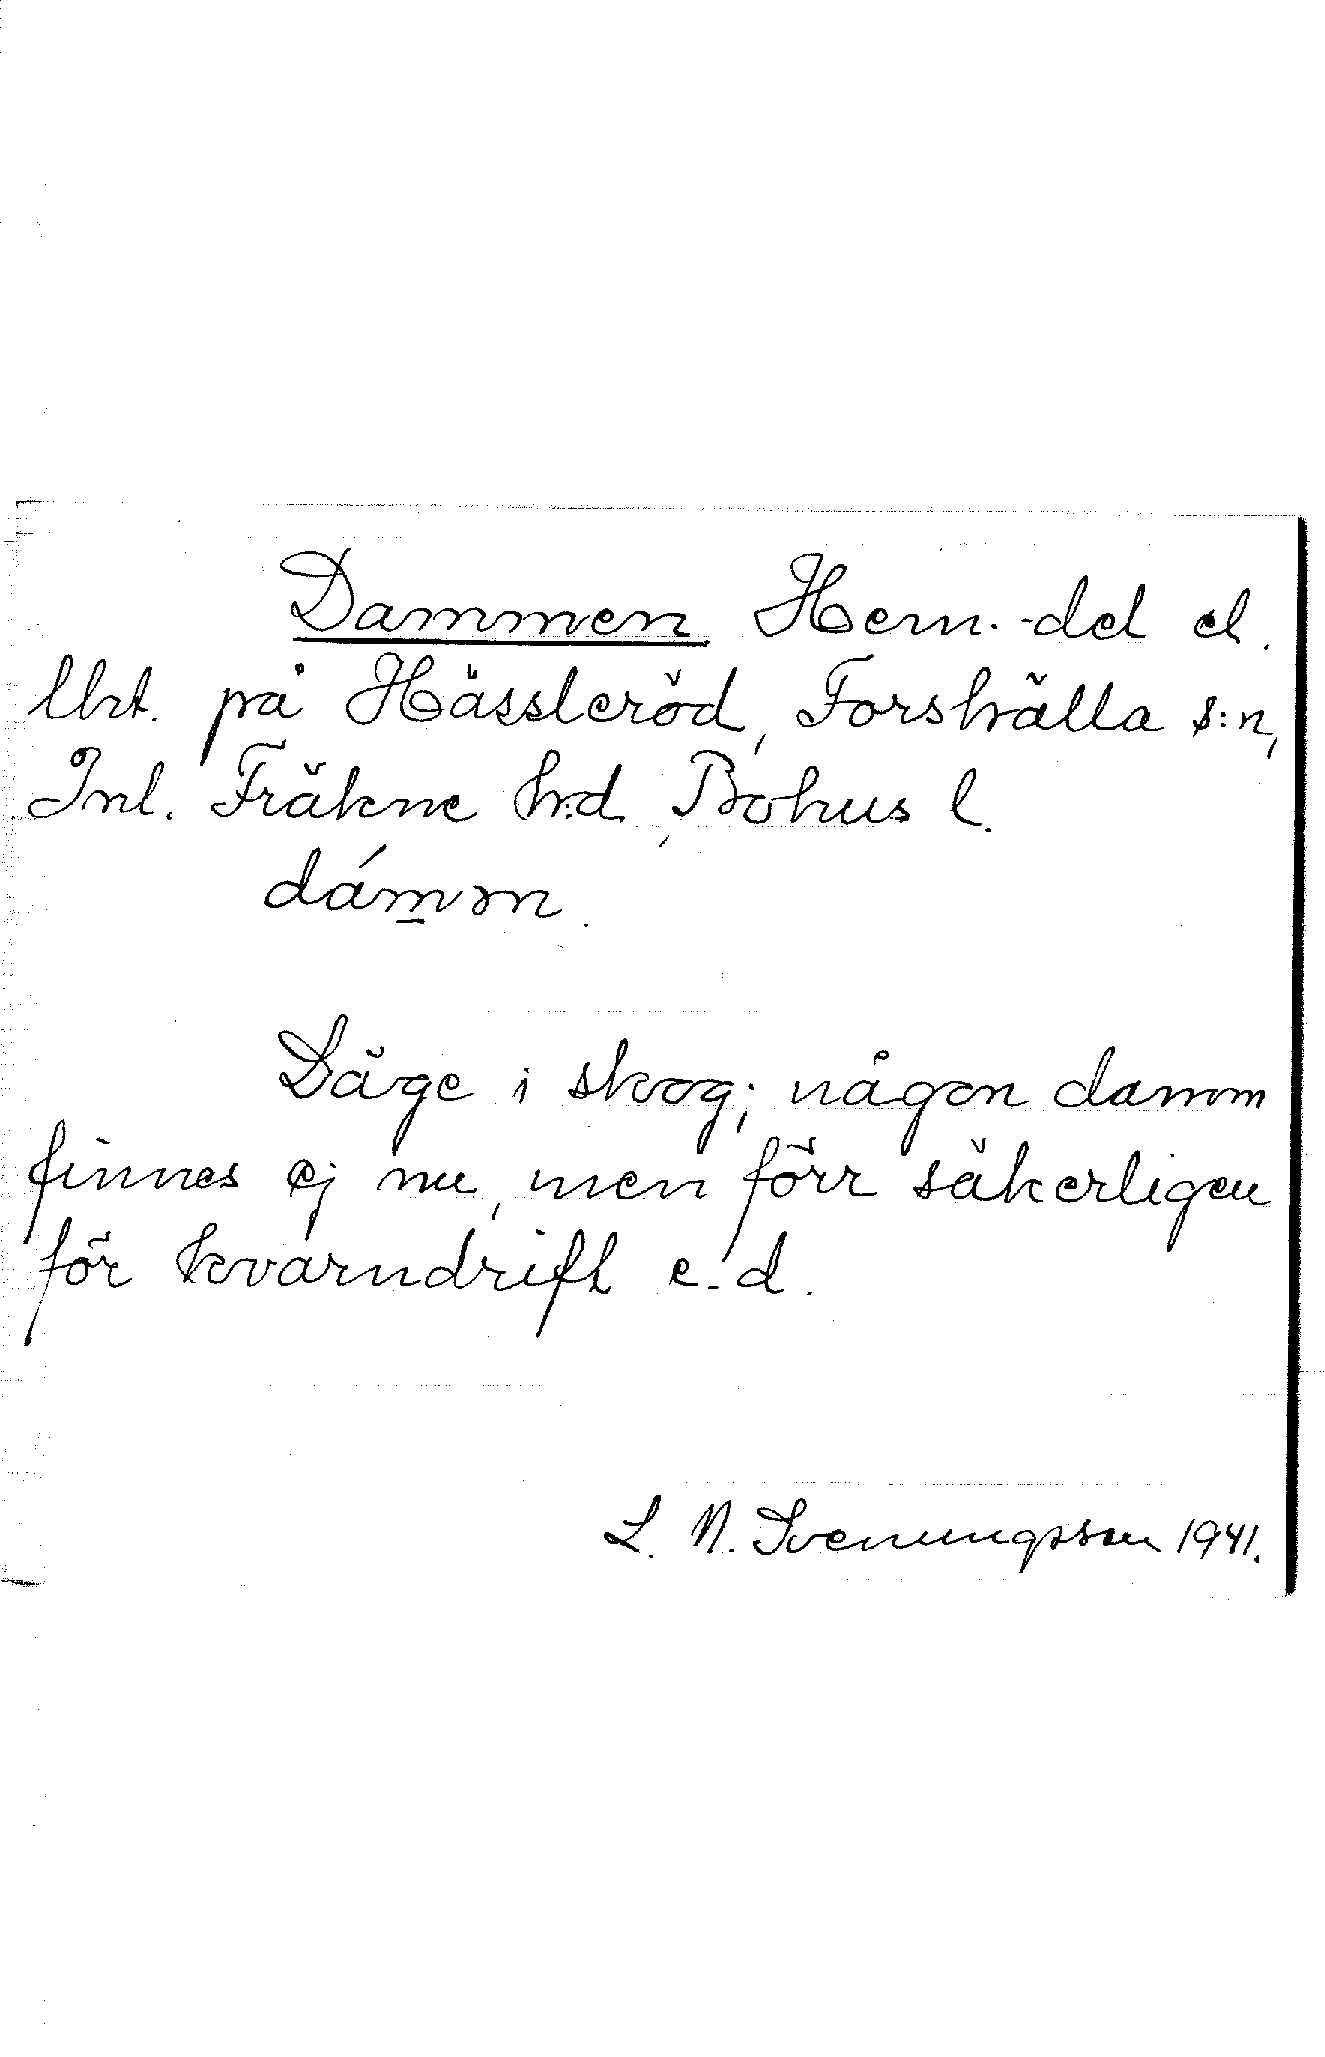 Dammen Hem.-del el.
lht. på Hässleröd, Forshälla s:n,
Inl. Fräkne h:d, Bohus l.
dámən.
Läge i skog; någon damm
finnes ej nu, men förr säkerligen
för kvarndrift e.d.
L. N. Svenungsson 1941.